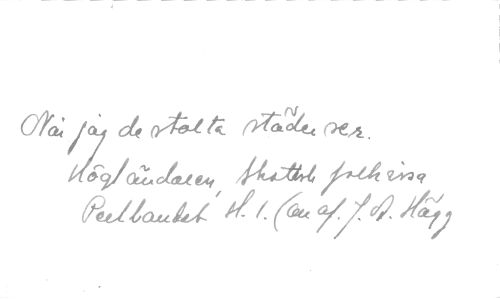 När jag de stolta städer ser.
Högländaren, Skotsk folkvisa
H. 1. (arr af. J. A. Hägg